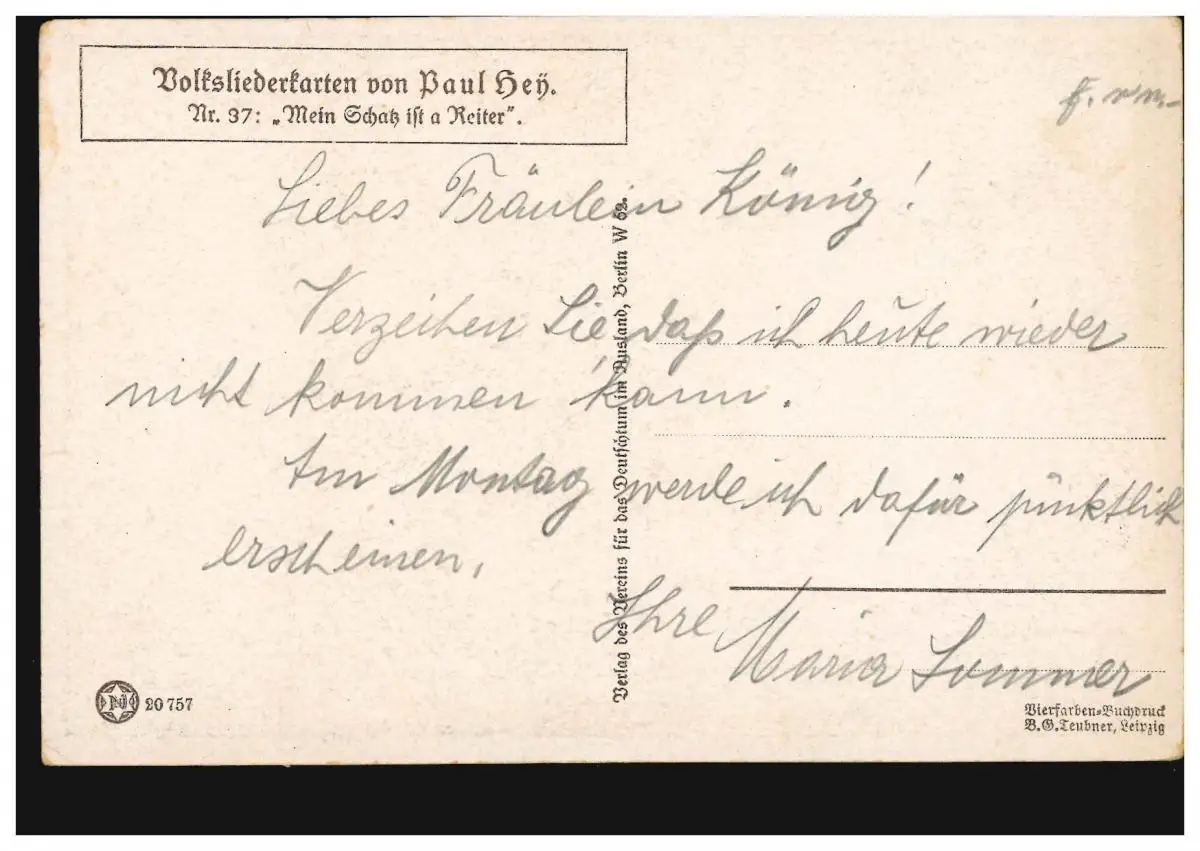 Volksliederkarten von Paul Hey.
Nr. 37: „Mein Schatz ist a Reiter".
Liebes Fräulein König!
Verzeihen Sie, daß ich heute wieder
nicht kommen kann.
Am Montag werde ich dafür pünktlich
erscheinen.
Ihre Maria Sommer
Verlag des Vereins für das Deutschtum im Ausland, Berlin W 62.
20 757
Vierfarben-Buchdruck
B.G.Teubner, Leipzig